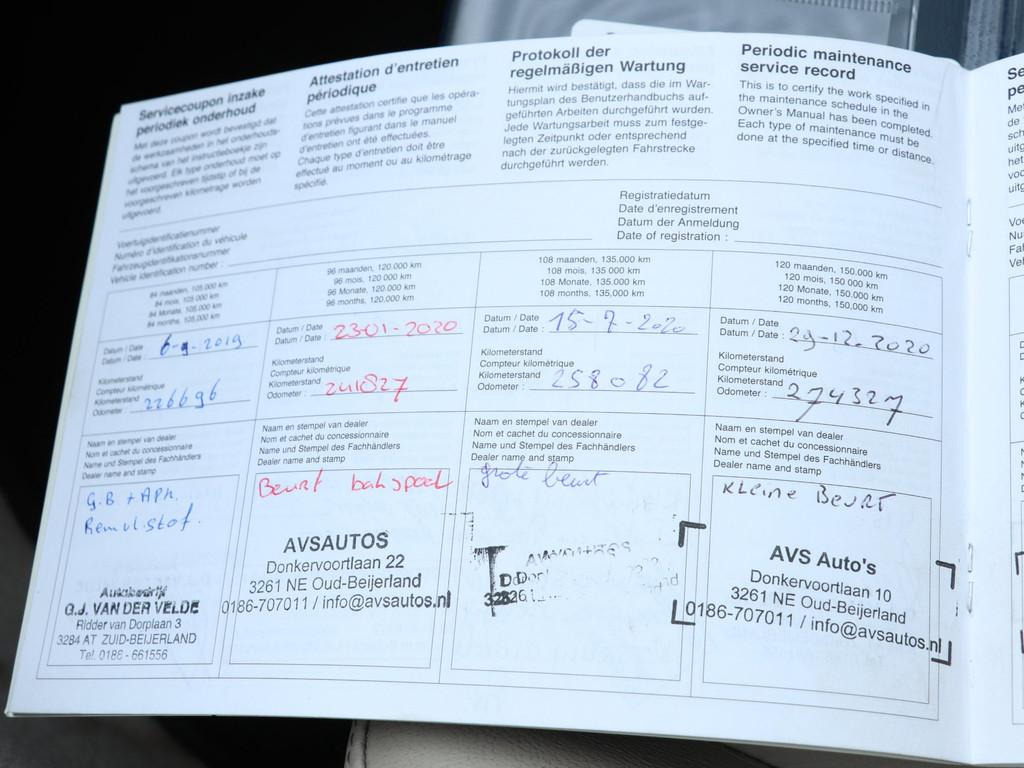 Servicecoupon inzake
periodiek onderhoud
Met deze coupon wordt bevestigd dat
de werkzaamheden in het onderhouds-
schema van het instructieboekje zijn
uitgevoerd. Elk type onderhoud moet op
het voorgeschreven tijdstip of bij de
voorgeschreven kilometrage worden
uitgevoerd.
Attestation d'entretien
périodique
Cette attestation certifie que les opéra-
tions prévues dans le programme
d'entretien figurant dans le manuel
d'entretien ont été effectuées.
Chaque type d'entretien doit être
effectué au moment ou au kilométrage
spécifié.
Protokoll der
regelmäßigen Wartung
Hiermit wird bestätigt, dass die im War-
tungsplan des Benutzerhandbuchs auf-
geführten Arbeiten durchgeführt wurden.
Jede Wartungsarbeit muss zum festge-
legten Zeitpunkt oder entsprechend
nach der zurückgelegten Fahrstrecke
durchgeführt werden.
Periodic maintenance
service record
This is to certify the work specified in
the maintenance schedule in the
Owner's Manual has been completed.
Each type of maintenance must be
done at the specified time or distance.
Voertuigidentificatienummer
Numéro d'identification du véhicule
Fahrzeugidentifikationsnummer
Vehicle identification number :
Registratiedatum
Date d'enregistrement
Datum der Anmeldung
Date of registration :
84 maanden, 105.000 km
84 mois, 105 000 km
84 Monate, 105.000 km
84 months, 105,000 km
Datum / Date
Datum / Date : 6-9-2019
Kilometerstand
Compteur kilométrique
Kilometerstand
Odometer : 226696
Naam en stempel van dealer
Nom et cachet du concessionnaire
Name und Stempel des Fachhändlers
Dealer name and stamp
G.B + APK.
Remvl.stof.
Autobedrijf
G.J. VAN DER VELDE
Ridder van Dorplaan 3
3284 AT ZUID-BEIJERLAND
Tel. 0186 - 661556
96 maanden, 120.000 km
96 mois, 120 000 km
96 Monate, 120.000 km
96 months, 120,000 km
Datum / Date
Datum / Date : 23-01-2020
Kilometerstand
Compteur kilométrique
Kilometerstand
Odometer : 241827
Naam en stempel van dealer
Nom et cachet du concessionnaire
Name und Stempel des Fachhändlers
Dealer name and stamp
Beurt
AVSAUTOS
Donkervoortlaan 22
3261 NE Oud-Beijerland
0186-707011 / info@avsautos.nl
108 maanden, 135.000 km
108 mois, 135 000 km
108 Monate, 135.000 km
108 months, 135,000 km
Datum / Date
Datum / Date : 15-7-2020
Kilometerstand
Compteur kilométrique
Kilometerstand
Odometer : 258082
Naam en stempel van dealer
Nom et cachet du concessionnaire
Name und Stempel des Fachhändlers
Dealer name and stamp
grote beurt
120 maanden, 150.000 km
120 mois, 150 000 km
120 Monate, 150.000 km
120 months, 150,000 km
Datum / Date
Datum / Date : 29-12.2020
Kilometerstand
Compteur kilométrique
Kilometerstand
Odometer : 274327
Naam en stempel van dealer
Nom et cachet du concessionnaire
Name und Stempel des Fachhändlers
Dealer name and stamp
KLeine BeuRT
AVS Auto's
Donkervoortlaan 10
3261 NE Oud-Beijerland
0186-707011 / info@avsautos.nl